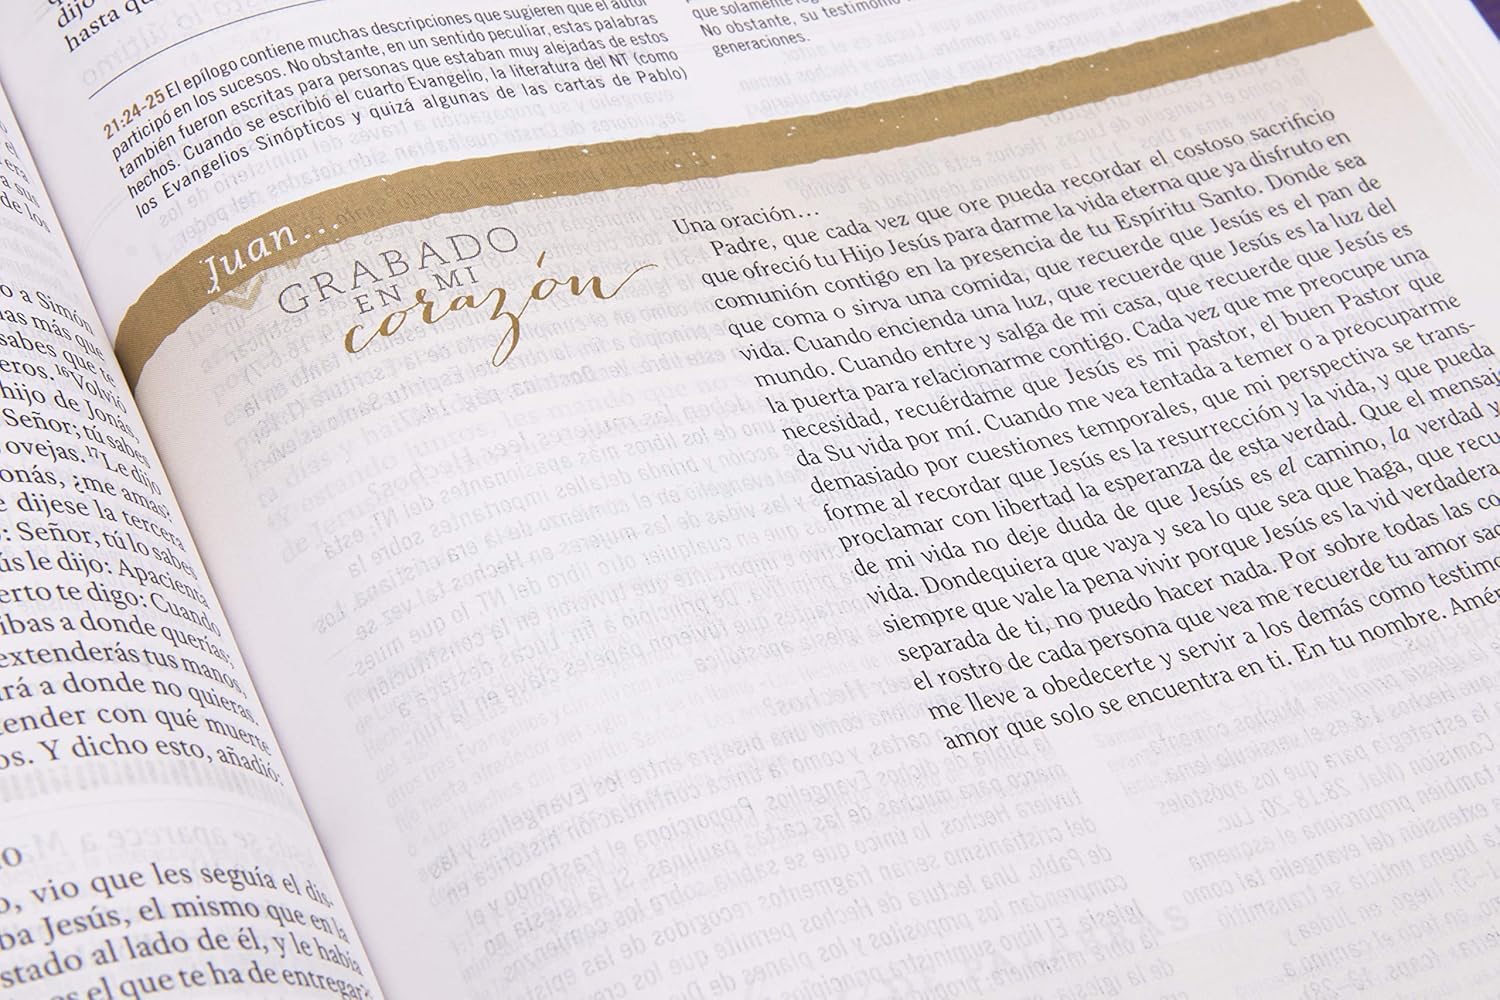 dijo
hasta
o a Simón
más que
sabes que te
eros. ¹⁶Volvió
hijo de Jonás,
Señor; tú sabes
ovejas. ¹⁷Le dijo
onás, ¿me amas?
e dijese la tercera
: Señor, tú lo sabes
ús le dijo: Apacienta
erto te digo: Cuando
ibas a donde querías;
extenderás tus manos,
rá a donde no quieras.
tender con qué muerte
os. Y dicho esto, añadió:
o, vio que les seguía el dis-
ba Jesús, el mismo que en la
stado al lado de él, y le había
es el que te ha de entregar?
21:24-25 El epílogo contiene muchas descripciones que sugieren que el autor
participó en los sucesos. No obstante, en un sentido peculiar, estas palabras
también fueron escritas para personas que estaban muy alejadas de estos
hechos. Cuando se escribió el cuarto Evangelio, la literatura del NT (como
los Evangelios Sinópticos y quizá algunas de las cartas de Pablo)
que solamente
No obstante, su testimonio
generaciones.
Juan...
GRABADO
EN MI
corazón
Una oración...
Padre, que cada vez que ore pueda recordar el costoso sacrificio
que ofreció tu Hijo Jesús para darme la vida eterna que ya disfruto en
comunión contigo en la presencia de tu Espíritu Santo. Donde sea
que coma o sirva una comida, que recuerde que Jesús es el pan de
vida. Cuando encienda una luz, que recuerde que Jesús es la luz del
mundo. Cuando entre y salga de mi casa, que recuerde que Jesús es
la puerta para relacionarme contigo. Cada vez que me preocupe una
necesidad, recuérdame que Jesús es mi pastor, el buen Pastor que
da Su vida por mí. Cuando me vea tentada a temer o a preocuparme
demasiado por cuestiones temporales, que mi perspectiva se trans-
forme al recordar que Jesús es la resurrección y la vida, y que pueda
proclamar con libertad la esperanza de esta verdad. Que el mensaje
de mi vida no deje duda de que Jesús es el camino, la verdad y
vida. Dondequiera que vaya y sea lo que sea que haga, que recu
siempre que vale la pena vivir porque Jesús es la vid verdadera
separada de ti, no puedo hacer nada. Por sobre todas las co
el rostro de cada persona que vea me recuerde tu amor sac
me lleve a obedecerte y servir a los demás como testimo
amor que solo se encuentra en ti. En tu nombre. Amén